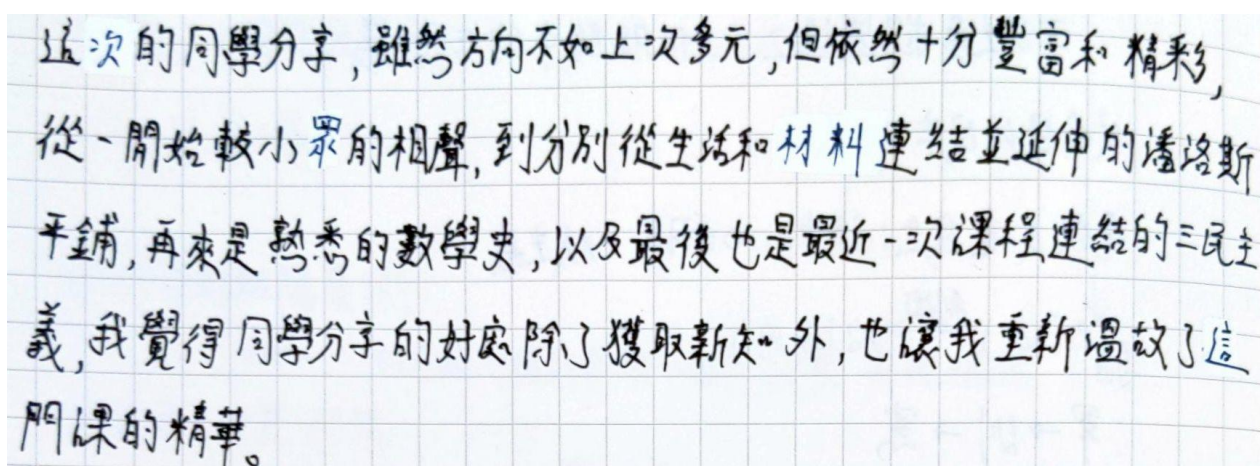 這次的同學分享,雖然方向不如上次多元,但依然十分豐富和精彩,
從一開始較小眾的相聲,到分別從生活和材料連結並延伸的潘洛斯
平鋪,再來是熟悉的數學史,以及最後也是最近一次課程連結的三民主
義,我覺得同學分享的好處除了獲取新知外,也讓我重新溫故了這
門課的精華。